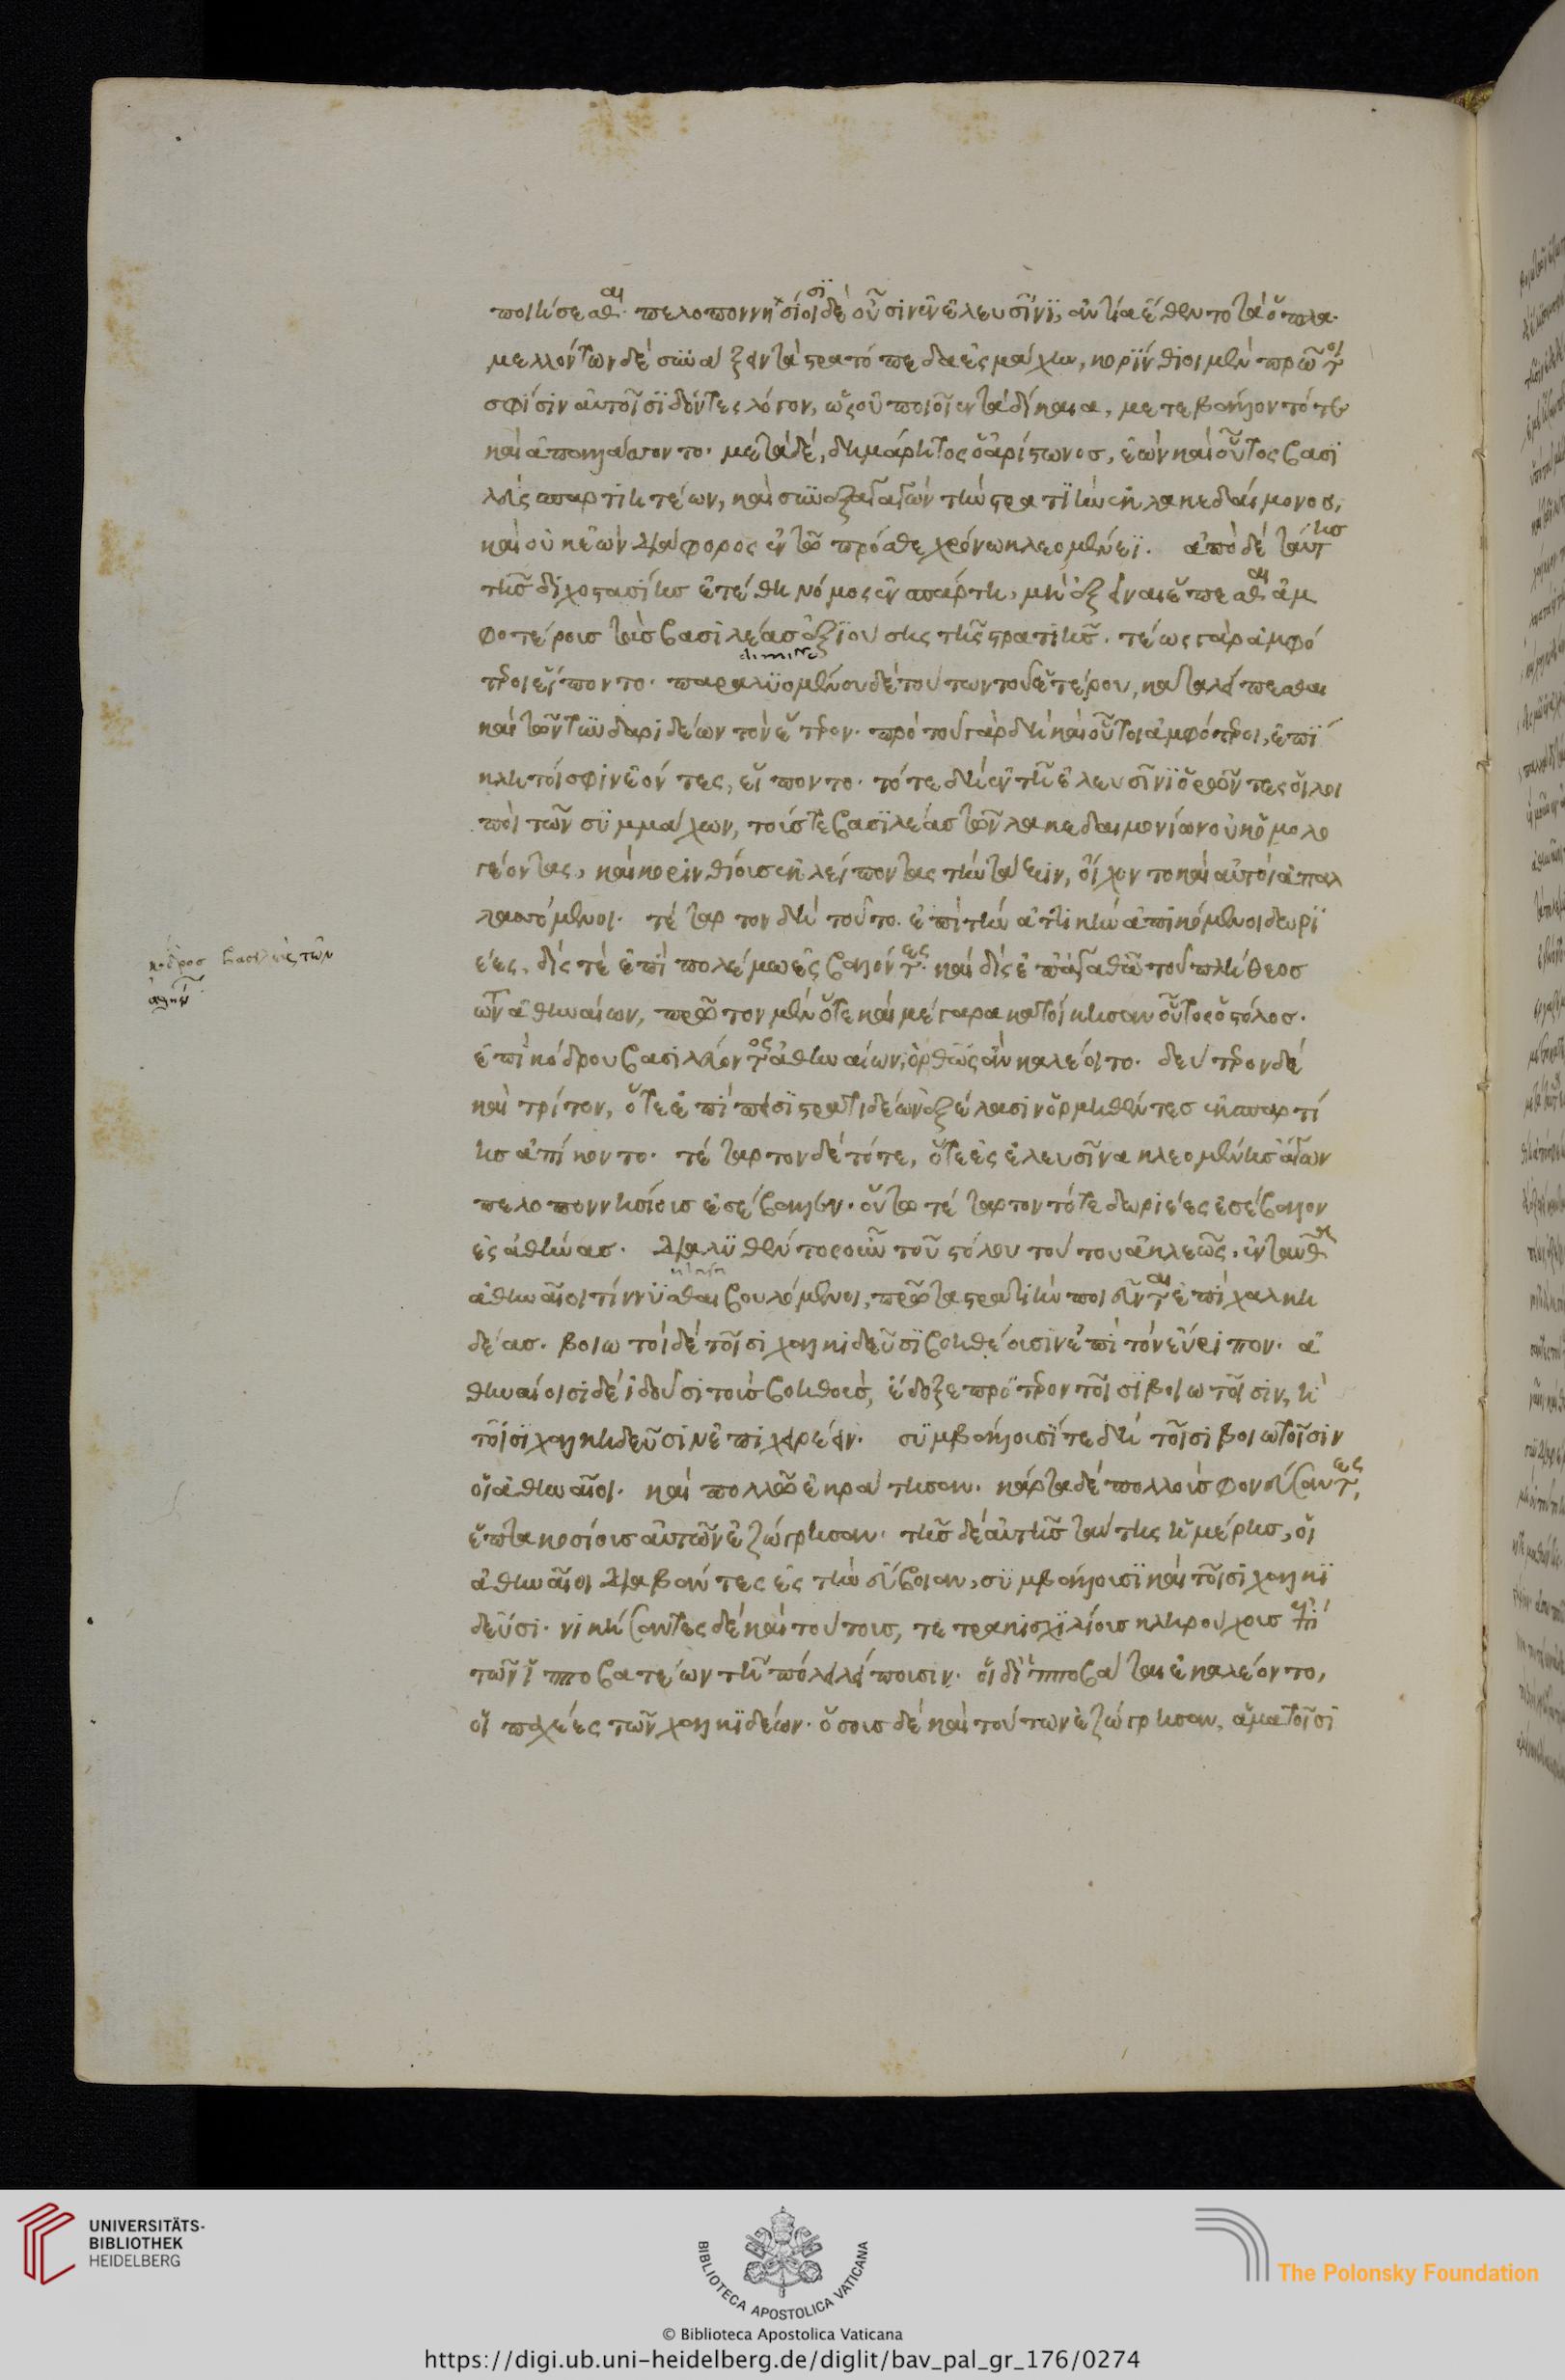 ποιήσεσθαι· πελοποννησίοισι δὲ οὖσιν ἐν ἐλευσῖνι, ἀντία ἔθεντο τὰ ὅπλα·
μελλόντων δὲ συνάξειν τὰ στρατόπεδα ἐς μάχην, κορίνθιοι μὲν πρῶτοι
σφίσιν αὐτοῖσι δόντες λόγον, ὡς οὐ ποιοῖεν τὰ δίκαια, μετεβάλλοντό τε
καὶ ἀπαλλάσσοντο· μετὰ δέ, δημάρητος ὁ ἀρίστωνος, ἐὼν καὶ οὗτος βασι
λεὺς σπαρτιητέων, καὶ συνεξαγαγὼν τὴν στρατιὴν ἐκ λακεδαίμονος,
καὶ οὐκ ἐὼν διάφορος ἐν τῶ πρόσθε χρόνω κλεομένεϊ. ἀπὸ δὲ ταύτης
τῆς διχοστασίης ἐτέθη νόμος ἐν σπάρτη, μὴ ἐξεῖναι ἕπεσθαι ἀμ
φοτέροις τοὺς βασιλέας ἐξιούσης τῆς στρατιῆς. τέως γὰρ ἀμφό
τεροι εἵποντο· παραλυομένου δὲ τούτων τοῦ ἑτέρου, καταλείπεσθαι
καὶ τῶν τυνδαριδέων τὸν ἕτερον· πρὸ τοῦ γὰρ δὴ καὶ οὗτοι ἀμφότεροι, ἐπί
κλητοί σφιν ἐόντες, εἵποντο· τότε δὴ ἐν τῆ ἐλευσῖνι ὁρῶντες οἱ λοι
ποὶ τῶν συμμάχων, τούς τε βασιλέας τῶν λακεδαιμονίων οὐκ ὁμολο
γέοντας, καὶ κορινθίους ἐκλείποντας τὴν τάξιν, οἴχοντο καὶ αὐτοὶ ἀπαλ
λασσόμενοι· τέταρτον δὴ τοῦτο ἐπὶ τὴν ἀττικὴν ἀπικόμενοι δωρι
έες, δίς τε ἐπὶ πολέμω ἐσβαλόντες· καὶ δὶς ἐπ' ἀγαθῶ τοῦ πλήθεος
τῶν ἀθηναίων, πρῶτον μὲν ὅτε καὶ μέγαρα κατοίκησαν οὗτος ὁ στόλος·
ἐπὶ κόδρου βασιλεύοντος ἀθηναίων, ὀρθῶς ἂν καλέοιτο· δεύτερον δὲ
καὶ τρίτον, ὅτε ἐπὶ πεισιστρατιδέων ἐξέλασιν ὁρμηθέντες ἐκ σπάρτ
ης ἀπίκοντο· τέταρτον δὲ τότε, ὅτε ἐς ἐλευσῖνα κλεομένης ἄγων
πελοποννησίους ἐσέβαλεν· οὕτω τέταρτον τότε δωριέες ἐσέβαλον
ἐς ἀθήνας· διαλυθέντος ὦν τοῦ στόλου τούτου ἀκλεῶς, ἐνταῦθα
ἀθηναῖοι τίννυσθαι βουλόμενοι, πρῶτα στρατιὴν ποιεῦνται ἐπὶ χαλκι
δέας· βοιωτοὶ δὲ τοῖσι χαλκιδεῦσι βοηθέουσιν ἐπὶ τὸν εὔριπον· ἀ
θηναίοισι δὲ ἰδοῦσι τοὺς βοηθοὺς, ἔδοξε πρότερον τοῖσι βοιωτοῖσιν, ἢ
τοῖσι χαλκιδεῦσιν ἐπιχειρέειν· συμβάλλουσί τε δὴ τοῖσι βοιωτοῖσιν
οἱ ἀθηναῖοι· καὶ πολλῶ ἐκράτησαν· κάρτα δὲ πολλοὺς φονεύσαντες,
ἑπτακοσίους αὐτῶν ἐζώγρησαν· τῆς δὲ αὐτῆς ταύτης ἡμέρης, οἱ
ἀθηναῖοι διαβάντες ἐς τὴν εὔβοιαν, συμβάλλουσι καὶ τοῖσι χαλκι
δεῦσι· νικήσαντες δὲ καὶ τούτους, τετρακισχιλίους κληρούχους ἐπὶ
τῶν ἱπποβατέων τῆ πόλει λείπουσιν· οἱ δὲ ἱπποβάται ἐκαλέοντο,
οἱ παχέες τῶν χαλκιδέων· ὅσους δὲ καὶ τούτων ἐζώγρησαν, ἅμα τοῖσι
κόδρος βασιλεὺς τῶν
ἀθην
UNIVERSITÄTS-
BIBLIOTHEK
HEIDELBERG
BIBLIOTECA APOSTOLICA VATICANA
The Polonsky Foundation
© Biblioteca Apostolica Vaticana
https://digi.ub.uni-heidelberg.de/diglit/bav_pal_gr_176/0274